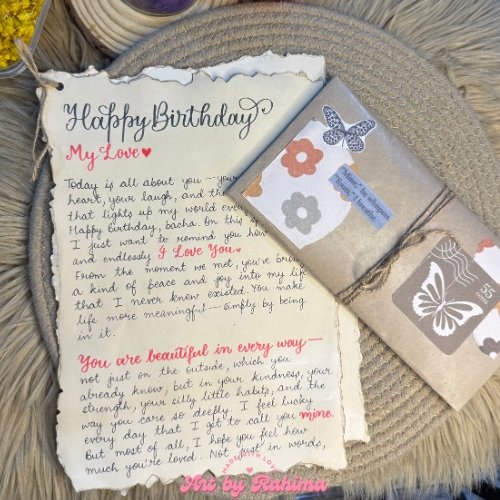 Happy Birthday
My Love
Today is all about you — your
heart, your laugh, and the
that lights up my world
Happy birthday, bacha. On this
I just want to remind you how
and endlessly I Love You
From the moment we met, you've
a kind of peace and joy into my life
that I never knew existed. You make
life more meaningful — simply by being
in it.
You are beautiful in every way —
not just on the outside, which you
already know, but in your kindness, your
strength, your silly little habits, and the
way you care so deeply. I feel lucky
every day that I get to call you mine.
But most of all, I hope you feel how
much you're loved. Not just in words,
"Mine," he whispers.
"Yours," I breathe.
55
MADE WITH LOVE
Art by Rahima